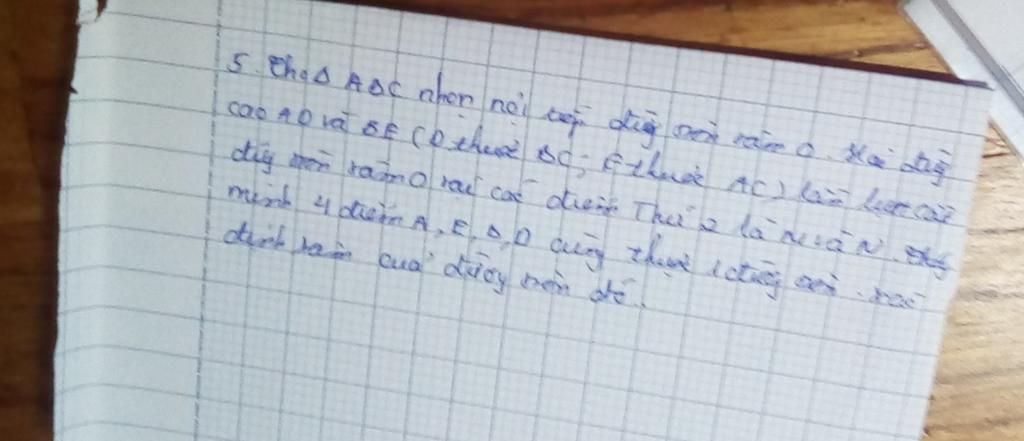 5. Cho Δ ABC nhọn nội tiếp đtg tròn tâm O. Hai đtg
cao AD và BE (D thuộc BC; E thuộc AC) lần lượt cắt
đtg tròn tâm O tại các điểm Thứ 2 là M và N.
minh 4 điểm A, E, B, D cùng thuộc 1 đtg tròn. xác
định tâm của đường tròn đó.